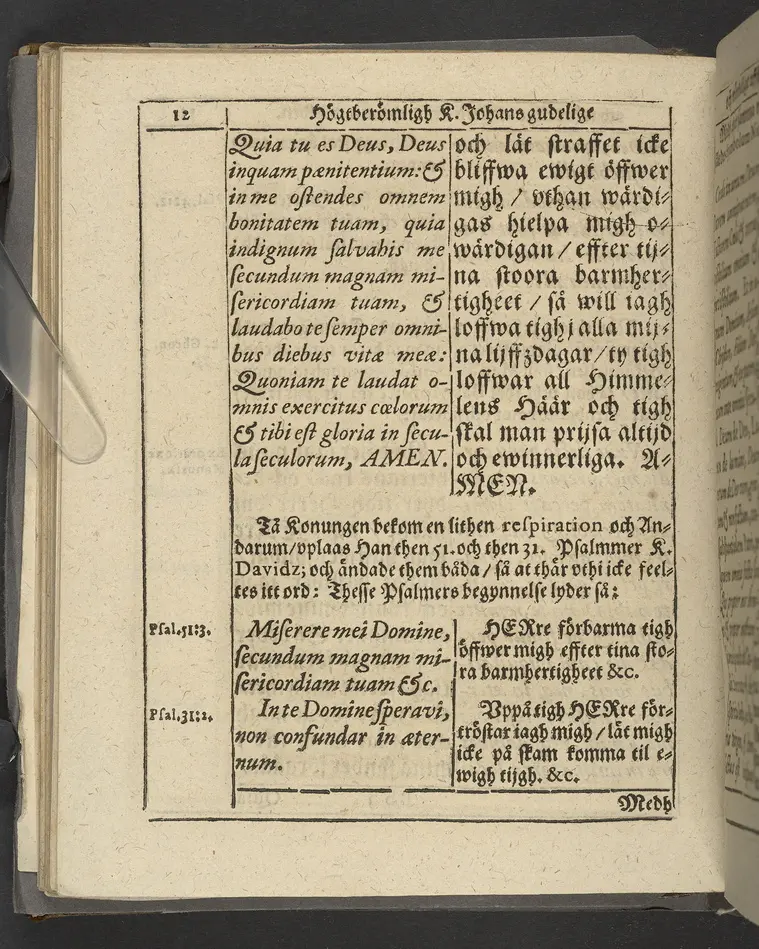 12
Högtberömligh K. Johans gudelige
Quia tu es Deus, Deus
inquam pænitentium: &
in me ostendes omnem
bonitatem tuam, quia
indignum salvabis me
secundum magnam mi-
sericordiam tuam, &
laudabo te semper omni-
bus diebus vitæ meæ:
Quoniam te laudat o-
mnis exercitus cœlorum
& tibi est gloria in secu-
la seculorum, AMEN.
och låt straffet icke
bliffwa ewigt öffwer
migh / vthan wärdi-
gas hielpa migh o-
wärdigan / effter tij-
na stoora barmher-
tigheet / så will iagh
loffwa tigh j alla mij-
na lijffzdagar / ty tigh
loffwar all Himme-
lens Häär och tigh
skal man prijsa altijd
och ewinnerliga. A-
MEN.
Tå Konungen bekom en lithen respiration och An-
darum/vplaas Han then 51. och then 31. Psalmmer K.
Davidz; och ändade them båda / så at thär vthi icke feel-
tes itt ord: Thesse Psalmers begynnelse lyder så:
Psal. 51:3.
Miserere mei Domine,
secundum magnam mi-
sericordiam tuam &c.
HERre förbarma tigh
öffwer migh effter tina sto-
ra barmhertigheet &c.
Psal. 31:2.
In te Domine speravi,
non confundar in æter-
num.
Vppå tigh HERre för-
tröstar iagh migh / låt migh
icke på skam komma til e-
wigh tijgh. &c.
Medh